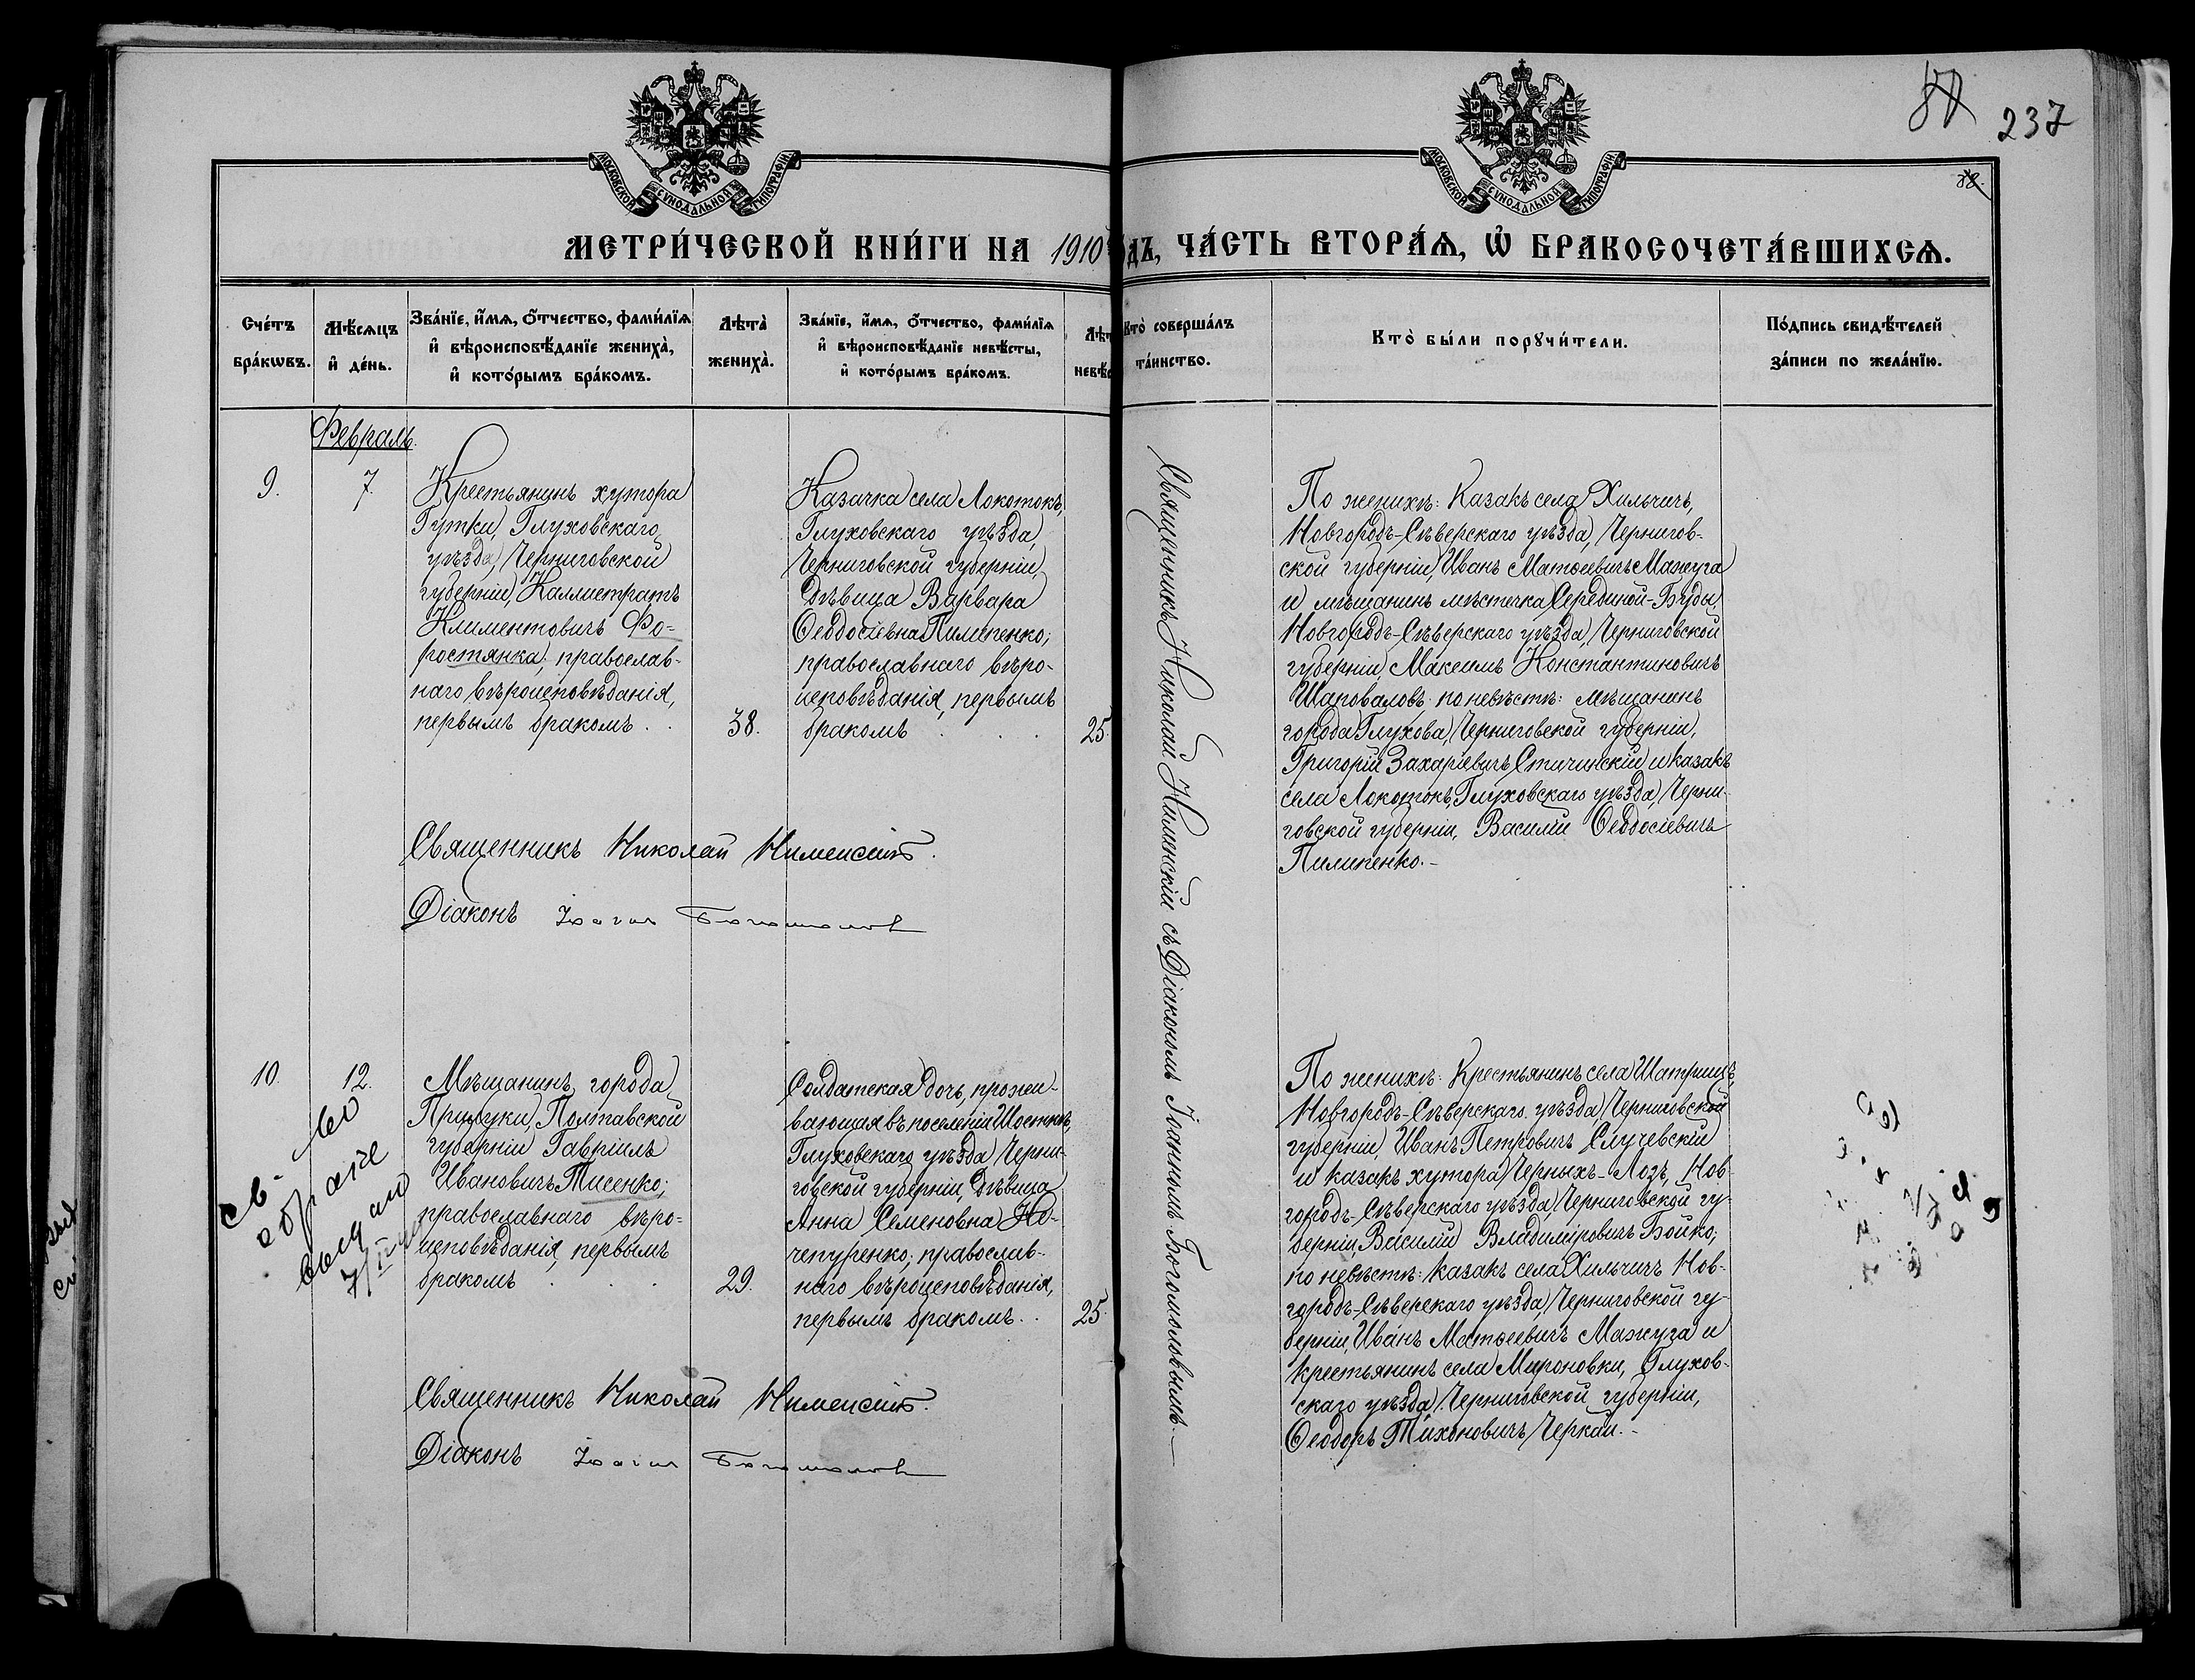 237
88.
МОСКОВСКОЙ СѴНОДАЛЬНОЙ ТИПОГРАФІИ
МОСКОВСКОЙ СѴНОДАЛЬНОЙ ТИПОГРАФІИ
МЕТРИ́ЧЕСКОЙ КНИ́ГИ НА 1910 ДЪ, ЧА́СТЬ ВТОРА́Ѧ, Ѽ БРАКОСОЧЕТА́ВШИХСѦ.
Сче́тъ
бра́кѡвъ.
Мѣ́сѧцъ
и҆ де́нь.
Зва́нїе, и҆́мѧ, ѻ҆́тчество, фами́лїѧ
и҆ вѣроисповѣ́данїе жениха̀,
и҆ кото́рымъ бра́комъ.
Лѣта̀
жениха̀.
Зва́нїе, и҆́мѧ, ѻ҆́тчество, фами́лїѧ
и҆ вѣроисповѣ́данїе невѣ́сты,
и҆ кото́рымъ бра́комъ.
Лѣт
невѣс
Кто̀ соверша́лъ
та́инство.
Кто̀ бы́ли порꙋчи́тели.
По́дпись свидѣ́телей
за́писи по жела́нїю.
Февраль.
9.
7.
Крестьянинъ хутора
Гутки, Глуховскаго
уѣзда, Черниговской
губерніи, Каллистратъ
Климентовичъ Фо-
ростянка; православ-
наго вѣроисповѣданія,
первымъ бракомъ . .
38.
Казачка села Локотокъ,
Глуховскаго уѣзда,
Черниговской губерніи,
дѣвица Варвара
Ѳеодосіевна Пилипенко;
православнаго вѣро-
исповѣданія, первымъ
бракомъ . . .
25.
Священникъ Николай Нименскій съ Діакономъ Іоанномъ Богомоловымъ.—
По женихѣ: Казакъ села Хильчичъ,
Новгородъ-Сѣверскаго уѣзда, Чернигов-
ской губерніи, Иванъ Матѳеевичъ Мажуга
и мѣщанинъ мѣстечка Середины-Буды,
Новгородъ-Сѣверскаго уѣзда, Черниговской
губерніи, Максимъ Константиновичъ
Шаповаловъ; по невѣстѣ: мѣщанинъ
города Глухова, Черниговской губерніи,
Григорій Захаріевичъ Стичинскій и казакъ
села Локотокъ, Глуховскаго уѣзда, Черни-
говской губерніи, Василій Ѳеодосіевичъ
Пилипенко.—
Священникъ Николай Нименскій.
Діаконъ Іоаннъ Богомоловъ
10.
12.
Мѣщанинъ города
Прилуки, Полтавской
губерніи Гавріилъ
Ивановичъ Тисенко;
православнаго вѣро-
исповѣданія, первымъ
бракомъ . . .
29.
Солдатская дочь, прожи-
вающая въ поселеніи Шосткѣ,
Глуховскаго уѣзда, Черни-
говской губерніи, дѣвица
Анна Семеновна Но-
чепуренко; православ-
наго вѣроисповѣданія,
первымъ бракомъ . .
25.
По женихѣ: Крестьянинъ села Шатрищъ,
Новгородъ-Сѣверскаго уѣзда, Черниговской
губерніи, Иванъ Петровичъ Случевскій
и казакъ хутора Черныхъ-Лозъ, Нов-
городъ-Сѣверскаго уѣзда, Черниговской гу-
берніи, Василій Владиміровичъ Бойко;
по невѣстѣ: казакъ села Хильчичъ Нов-
городъ-Сѣверскаго уѣзда, Черниговской гу-
берніи, Иванъ Матѳеевичъ Мажуга и
крестьянинъ села Мироновки, Глухов-
скаго уѣзда, Черниговской губерніи,
Ѳеодоръ Тихоновичъ Черкай.—
св-во
о браке
выдано
Священникъ Николай Нименскій.
Діаконъ Іоаннъ Богомоловъ